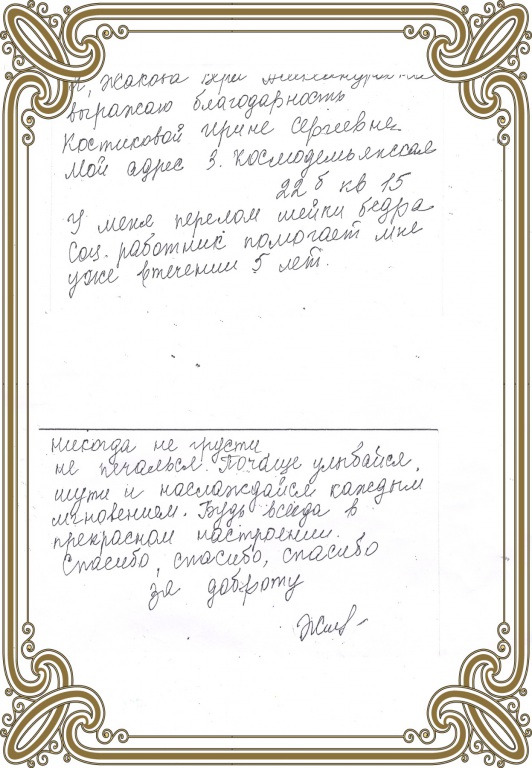 выражаю благодарность
Костиковой Ирине Сергеевне
Мой адрес З. Космодемьянская
22 б кв 15
У меня перелом шейки бедра
Соц. работник помогает мне
уже втечении 5 лет.
никогда не грусти
не печалься. Почаще улыбайся,
шути и наслаждайся каждым
мгновением. Будь всегда в
прекрасном настроении.
Спасибо, спасибо, спасибо
за доброту